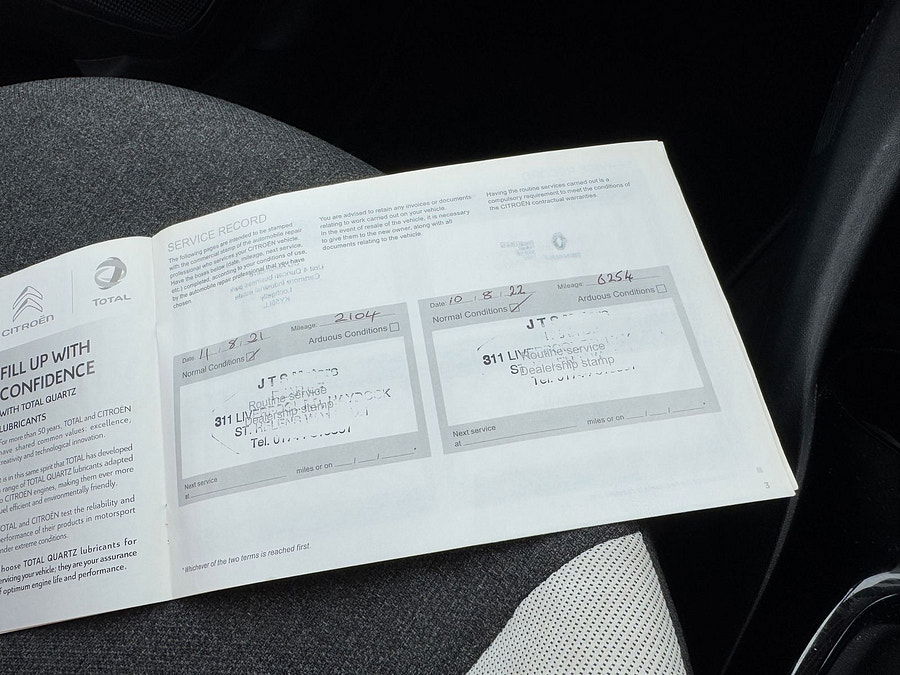 CITROËN
TOTAL
FILL UP WITH
CONFIDENCE
WITH TOTAL QUARTZ
LUBRICANTS
For more than 50 years, TOTAL and CITROËN
have shared common values: excellence,
creativity and technological innovation.
It is in this same spirit that TOTAL has developed
a range of TOTAL QUARTZ lubricants adapted
to CITROËN engines, making them ever more
fuel efficient and environmentally friendly.
TOTAL and CITROËN test the reliability and
performance of their products in motorsport
under extreme conditions.
Choose TOTAL QUARTZ lubricants for
servicing your vehicle; they are your assurance
of optimum engine life and performance.
SERVICE RECORD
The following pages are intended to be stamped
with the commercial stamp of the automobile repair
professional who services your CITROËN vehicle.
Have the boxes below (date, mileage, next service,
etc.) completed, according to your conditions of use,
by the automobile repair professional that you have
chosen.
You are advised to retain any invoices or documents
relating to work carried out on your vehicle.
In the event of resale of the vehicle, it is necessary
to give them to the new owner, along with all
documents relating to the vehicle.
Having the routine services carried out is a
compulsory requirement to meet the conditions of
the CITROËN contractual warranties.
Date: 11 / 8 / 21 Mileage: 2104
Normal Conditions ☑ Arduous Conditions ☐
JTS
Routine service
311
Dealership stamp
ST.
Tel.
Next service
at miles or on / /
Date: 10 / 8 / 22 Mileage: 6254
Normal Conditions ☑ Arduous Conditions ☐
JTS
311 Routine service
ST. Dealership stamp
Tel.
Next service
at miles or on / /
*Whichever of the two terms is reached first.
3